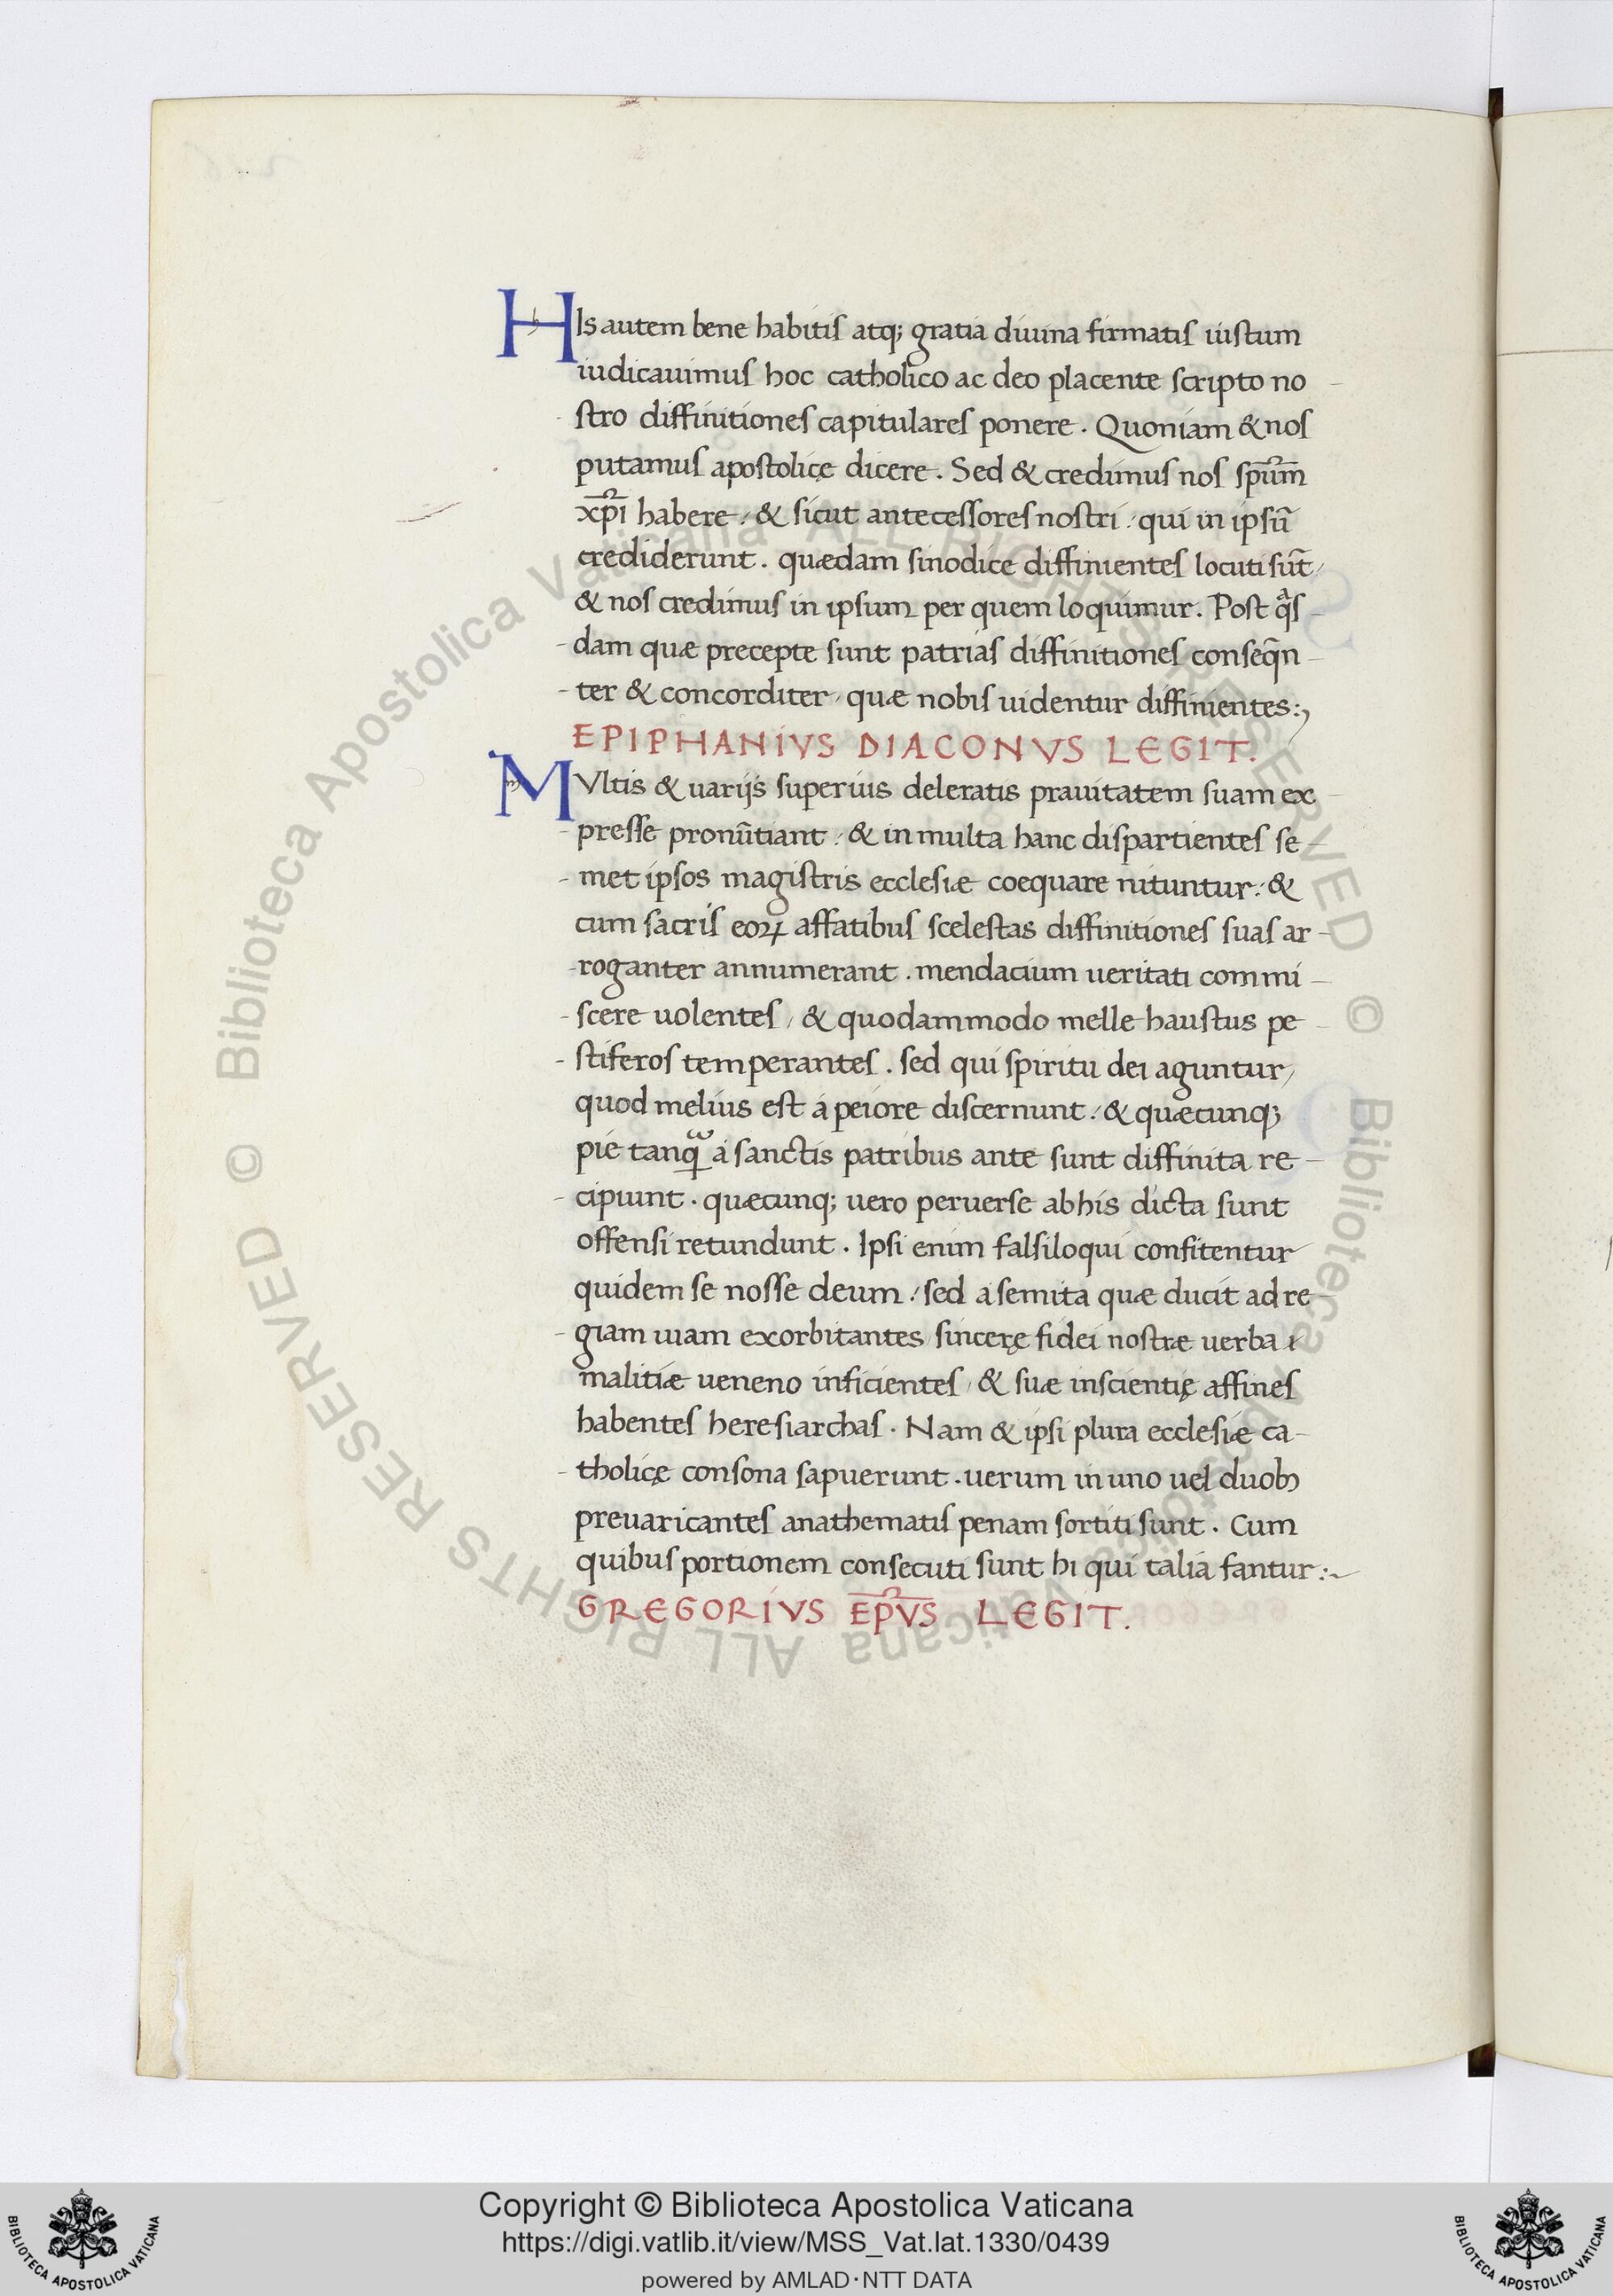 HIs autem bene habitis atq; gratia diuina firmatis iustum
iudicauimus hoc catholico ac deo placente scripto no
stro diffinitiones capitulares ponere. Quoniam & nos
putamus apostolicę dicere. Sed & credimus nos sp̄um
xp̄i habere: & sicut antecessores nostri: qui in ipsū
crediderunt. quædam sinodice diffinientes locuti sūt/
& nos credimus in ipsum per quem loquimur. Post qͣs
-dam quæ precepte sunt patrias diffinitiones conseq̄n
-ter & concorditer, quæ nobis uidentur diffinientes:,
EPIPHANIVS DIACONVS LEGIT.
MVltis & uarijs superius deleratis prauitatem suam ex
-presse pronūtiant: & in multa hanc dispartientes se-
-met ipsos magistris ecclesiæ coequare nituntur: &
cum sacris eoꝝ affatibus scelestas diffinitiones suas ar-
-roganter annumerant. mendacium ueritati commi-
-scere uolentes, & quodammodo melle haustus pe-
-stiferos temperantes. sed qui spiritu dei aguntur,
quod melius est a peiore discernunt: & quæcunq;
pie tanqͣ a sanctis patribus ante sunt diffinita re-
-cipiunt. quæcunq; uero peruerse ab his dicta sunt
offensi retundunt. Ipsi enim falsiloqui confitentur
quidem se nosse deum: sed a semita quæ ducit ad re-
-giam uiam exorbitantes sincerę fidei nostræ uerba
malitiæ ueneno inficientes, & suæ inscientię affines
habentes heresiarchas. Nam & ipsi plura ecclesiæ ca-
-tholicę consona sapuerunt. uerum in uno uel duob;
preuaricantes anathematis penam sortiti sunt. Cum
quibus portionem consecuti sunt hi qui talia fantur:~
GREGORIVS EP̄VS LEGIT.
© Biblioteca Apostolica Vaticana ALL RIGHTS RESERVED © Biblioteca Apostolica Vaticana ALL RIGHTS RESERVED
Copyright © Biblioteca Apostolica Vaticana
https://digi.vatlib.it/view/MSS_Vat.lat.1330/0439
powered by AMLAD·NTT DATA
BIBLIOTECA APOSTOLICA VATICANA
BIBLIOTECA APOSTOLICA VATICANA